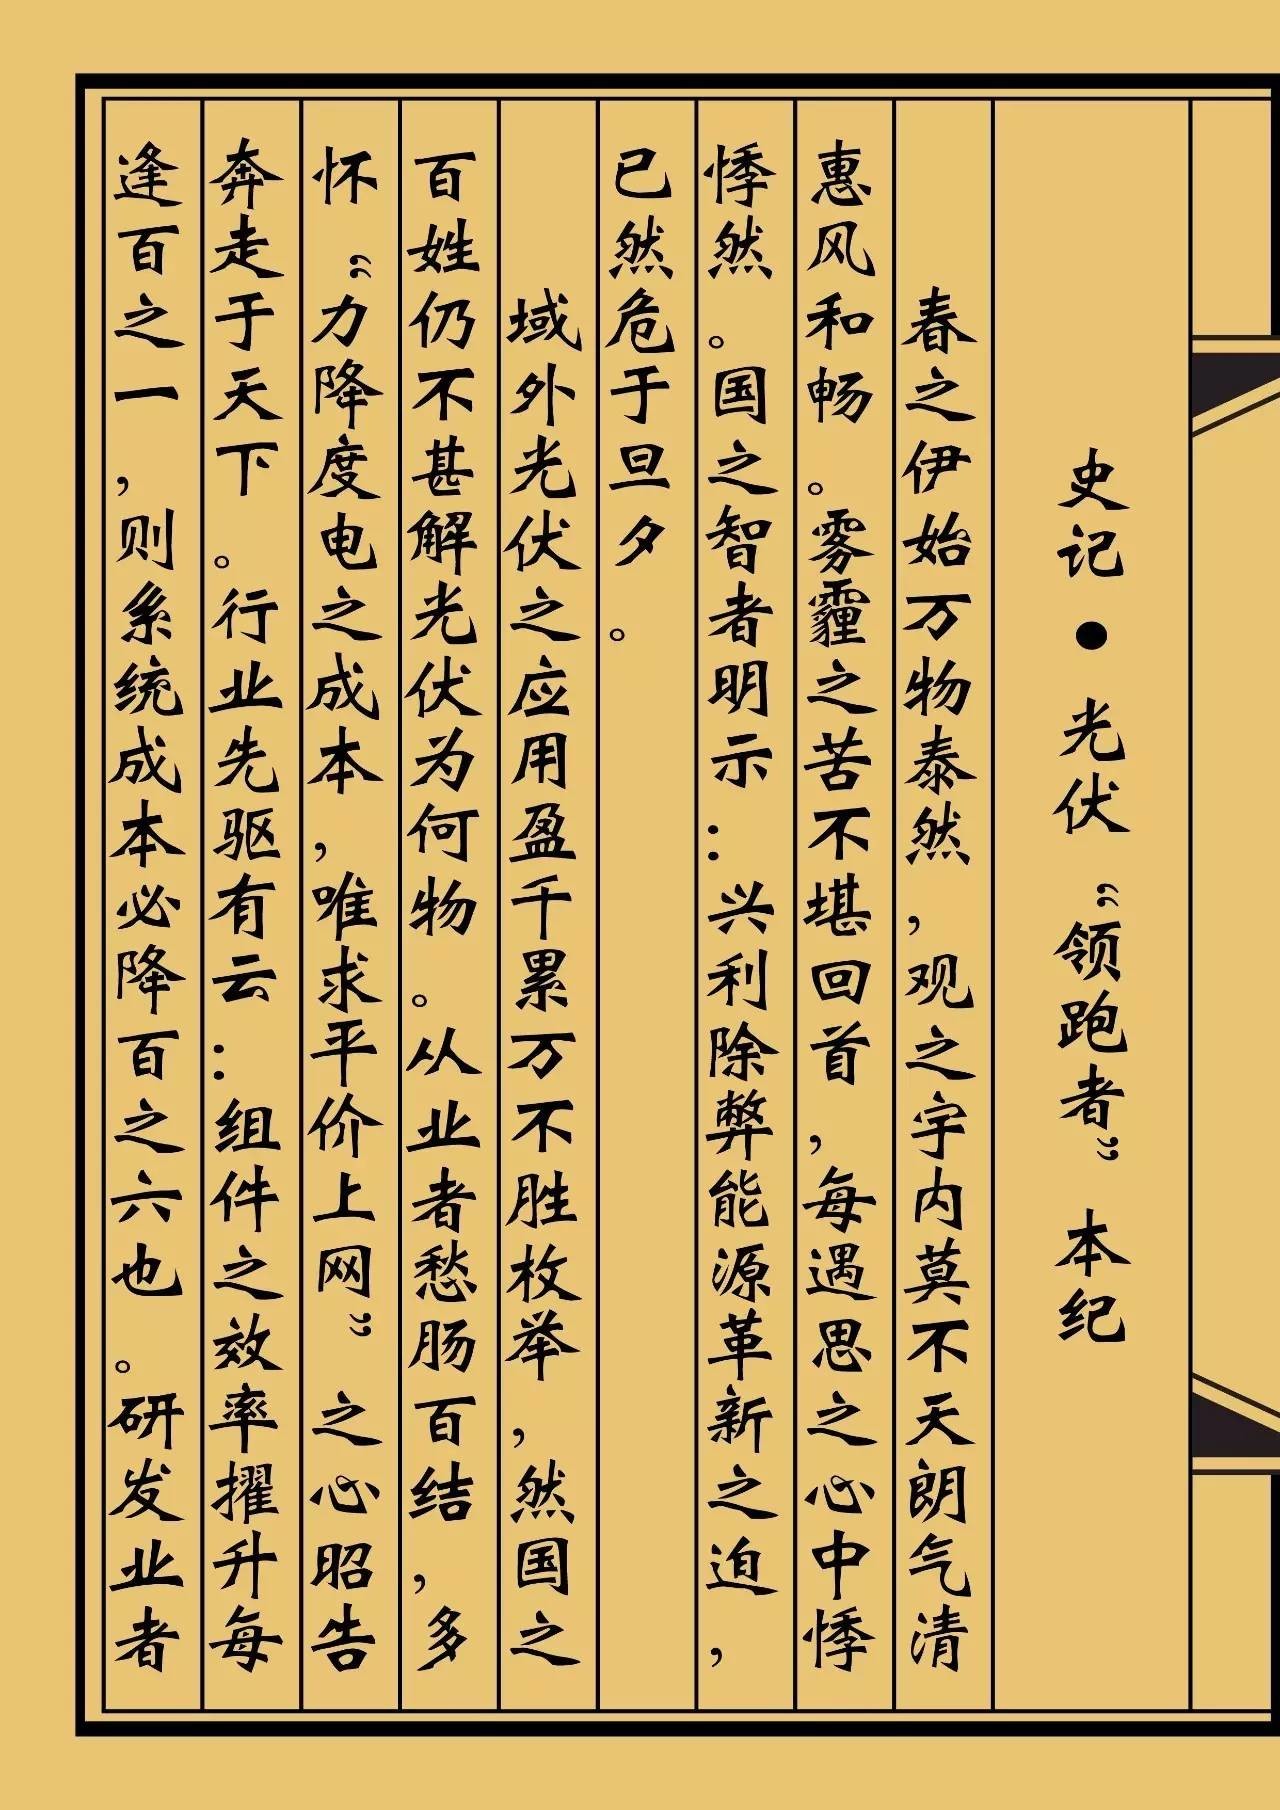 史记·光伏“领跑者”本纪
春之伊始万物泰然，观之宇内莫不天朗气清
惠风和畅。雾霾之苦不堪回首，每遇思之心中悸
悸然。国之智者明示：兴利除弊能源革新之迫，
已然危于旦夕。
域外光伏之应用盈千累万不胜枚举，然国之
百姓仍不甚解光伏为何物。从业者愁肠百结，多
怀“力降度电之成本，唯求平价上网”之心昭告
奔走于天下。行业先驱有云：组件之效率擢升每
逢百之一，则系统成本必降百之六也。研发业者